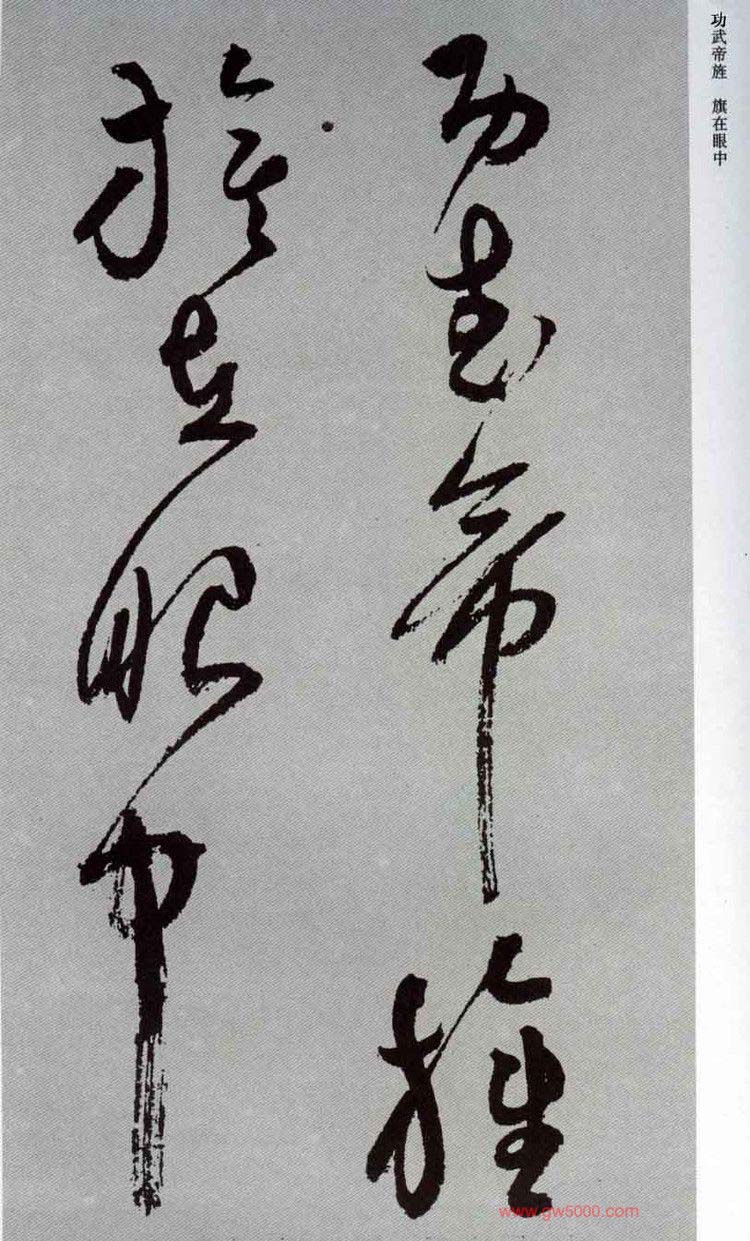 功武帝旌　旗在眼中
功武帝旌
旗在眼中
www.gw5000.com